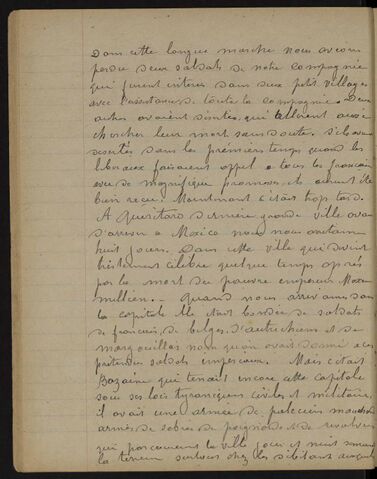 Dans cette longue marche nous avions
perdu deux soldats de notre compagnie
qui furent enterés dans deux petit villages
avec l'assistance de toute la compagnie. Deux
autres avaient désertés, qui allèrent aussi
chercher leur mort sans doute. s'ils avaient
desertés dans les premiers temps quand les
liberaux faisaient appel a tous les français
avec de magnifique promesses, ils auraient été
bien reçu. Maintenant c'etait trop tard.
A Queretaro dernière grande ville avant
d'arriver a Mexico nous nous arretames
huit jours. Dans cette ville qui devint
tristement célèbre quelque temps après
par la mort du pauvre empereur Maxi
millien. Quand nous arrivames dans
la capitale elle était bondée de soldats
de francais, de belges, d'autrichiens et de
margouillas nom qu'on avait donné a ces
pretendus soldats imperiaux. Mais c'etait
Bazaine qui tenait encore cette capitale
sous ses lois tyranniques civiles et militaires,
il avait une armée de policiers
armés de sabres de poignards et de revolvers
qui parcouraient la ville jour et nuit semant
la terreur surtout chez les habitants